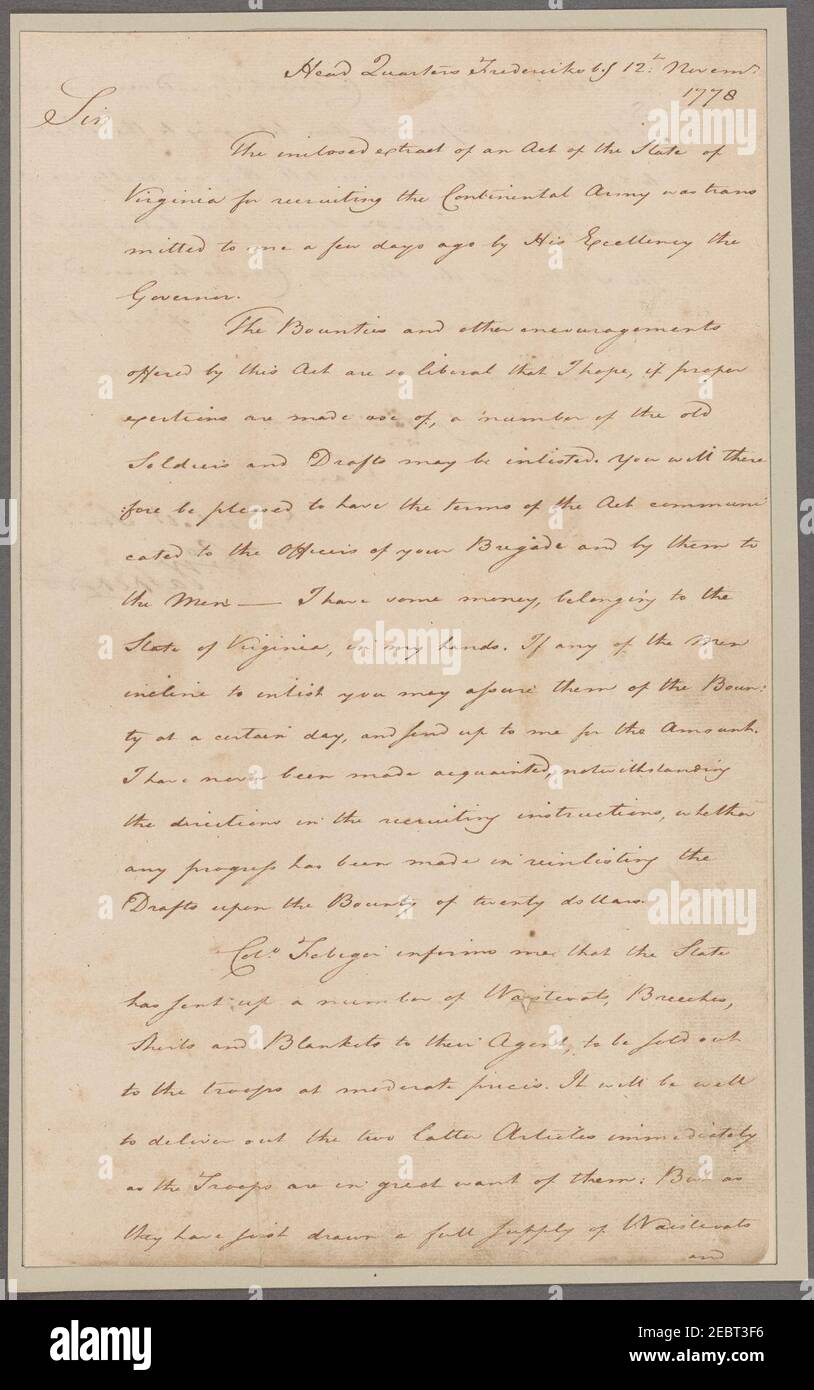 Head Quarters Fredericksbg 12th Novemr
1778
Sir
The inclosed extract of an Act of the State of
Virginia for recruiting the Continental Army was trans
mitted to me a few days ago by His Excellency the
Governor.
The Bounties and other encouragements
offered by this Act are so liberal that I hope, if proper
exertions are made use of, a number of the old
Soldiers and Drafts may be inlisted. You will there
:fore be pleased to have the terms of the Act communi
cated to the Officers of your Brigade and by them to
the Men — I have some money, belonging to the
State of Virginia, in my hands. If any of the Men
incline to inlist you may assure them of the Boun:
ty at a certain day, and send up to me for the Amount.
I have never been made acquainted, notwithstanding
the directions in the recruiting instructions, whether
any progress has been made in reinlisting the
Drafts upon the Bounty of twenty dollars.
Colo. Febiger informs me that the State
has sent up a number of Waistcoats, Breeches,
Shirts and Blankets to their Agent, to be sold out
to the troops at moderate prices. It will be well
to deliver out the two latter Articles immediately
as the Troops are in great want of them: But as
they have just drawn a full supply of Waistcoats
and
alamy
Image ID: 2EBT3F6
www.alamy.com